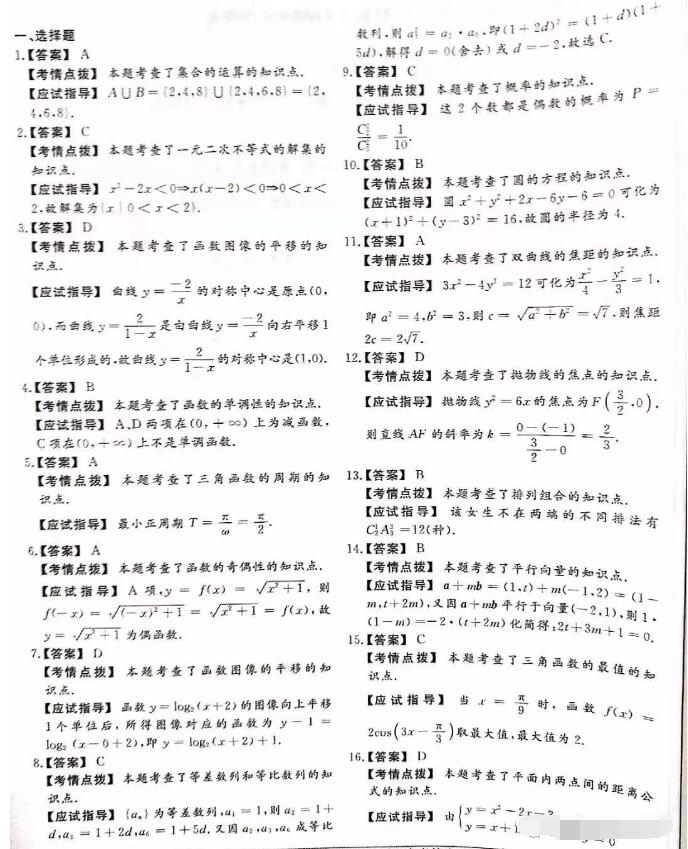 一、选择题
1.【答案】 A
【考情点拨】 本题考查了集合的运算的知识点.
【应试指导】 A∪B={2,4,8}∪{2,4,6,8}={2,
4,6,8}.
2.【答案】 C
【考情点拨】 本题考查了一元二次不等式的解集的
知识点.
【应试指导】 x²-2x<0⇒x(x-2)<0⇒0<x<
2,故解集为{x|0<x<2}.
3.【答案】 D
【考情点拨】 本题考查了函数图像的平移的知
识点.
【应试指导】 曲线 y=-2/x 的对称中心是原点(0,
0),而曲线 y=2/(1-x) 是由曲线 y=-2/x 向右平移1
个单位形成的,故曲线 y=2/(1-x) 的对称中心是(1,0).
4.【答案】 B
【考情点拨】 本题考查了函数的单调性的知识点.
【应试指导】 A、D两项在(0,+∞)上为减函数,
C项在(0,+∞)上不是单调函数.
5.【答案】 A
【考情点拨】 本题考查了三角函数的周期的知
识点.
【应试指导】 最小正周期 T=π/ω=π/2.
6.【答案】 A
【考情点拨】 本题考查了函数的奇偶性的知识点.
【应试指导】 A项,y = f(x) = √(x²+1), 则
f(-x) = √((-x)²+1) = √(x²+1) = f(x),故
y=√(x²+1) 为偶函数.
7.【答案】 D
【考情点拨】 本题考查了函数图像的平移的知
识点.
【应试指导】 函数 y=log₂(x+2)的图像向上平移
1个单位后,所得图像对应的函数为 y-1=
log₂(x-0+2),即 y=log₂(x+2)+1.
8.【答案】 C
【考情点拨】 本题考查了等差数列和等比数列的知
识点.
【应试指导】 {aₙ}为等差数列,a₁=1,则 a₂=1+
d,a₃=1+2d,a₆=1+5d.又因 a₂,a₃,a₆ 成等比
数列,则 a₃²=a₂·a₆,即(1+2d)²=(1+d)(1+
5d),解得 d=0(舍去)或 d=-2,故选C.
9.【答案】 C
【考情点拨】 本题考查了概率的知识点.
【应试指导】 这2个数都是偶数的概率为 P=
C₂²/C₅²=1/10.
10.【答案】 B
【考情点拨】 本题考查了圆的方程的知识点.
【应试指导】 圆 x²+y²+2x-6y-6=0 可化为
(x+1)²+(y-3)²=16,故圆的半径为4.
11.【答案】 A
【考情点拨】 本题考查了双曲线的焦距的知识点.
【应试指导】 3x²-4y²=12可化为 x²/4-y²/3=1,
即 a²=4,b²=3,则 c=√(a²+b²)=√7,则焦距
2c=2√7.
12.【答案】 D
【考情点拨】 本题考查了抛物线的焦点的知识点.
【应试指导】 抛物线 y²=6x的焦点为 F(3/2,0),
则直线 AF 的斜率为 k=(0-(-1))/(3/2-0)=2/3.
13.【答案】 B
【考情点拨】 本题考查了排列组合的知识点.
【应试指导】 该女生不在两端的不同排法有
C₂¹A₃³=12(种).
14.【答案】 B
【考情点拨】 本题考查了平行向量的知识点.
【应试指导】 a+mb=(1,t)+m(-1,2)=(1-
m,t+2m),又因 a+mb 平行于向量(-2,1),则1·
(1-m)=-2·(t+2m)化简得:2t+3m+1=0.
15.【答案】 C
【考情点拨】 本题考查了三角函数的最值的知
识点.
【应试指导】 当 x=π/9 时,函数 f(x)=
2cos(3x-π/3)取最大值,最大值为2.
16.【答案】 D
【考情点拨】 本题考查了平面内两点间的距离公
式的知识点.
【应试指导】 由{y=x²-2x-3
y=x+1